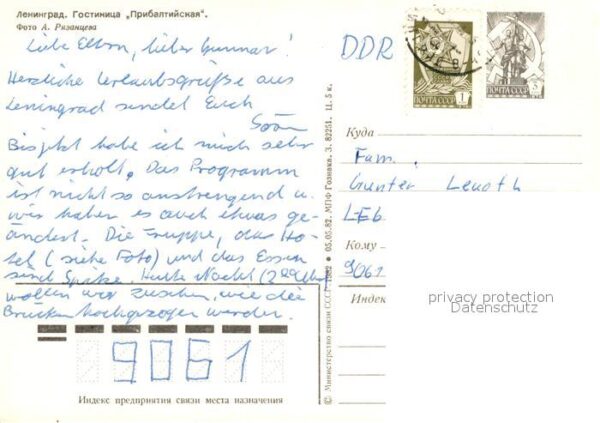 Ленинград. Гостиница „Прибалтийская".
Фото А. Рязанцева
Liebe Eltern, lieber Gunnar!
Herzliche Urlaubsgrüße aus
Leningrad sendet Euch
Bisjetzt habe ich mich sehr
gut erholt. Das Programm
ist nicht so anstrengend u.
wir haben es auch etwas ge-
ändert. Die Gruppe, das Ho-
tel (siehe Foto) und das Essen
sind Spitze. Heute Nacht (2
wollen wir zusehen, wie die
Brücken hochgezogen werden.
9061
Индекс предприятия связи места назначения
© Министерство связи СССР. 1982 ● 05.05.82. МПФ Гознака. З. 82251. Ц. 5 к.
DDR
ПОЧТА СССР 1
ПОЧТА СССР
Куда
Fam.
Gunter
LEb.
Кому
9061
Индек
privacy protection
Datenschutz